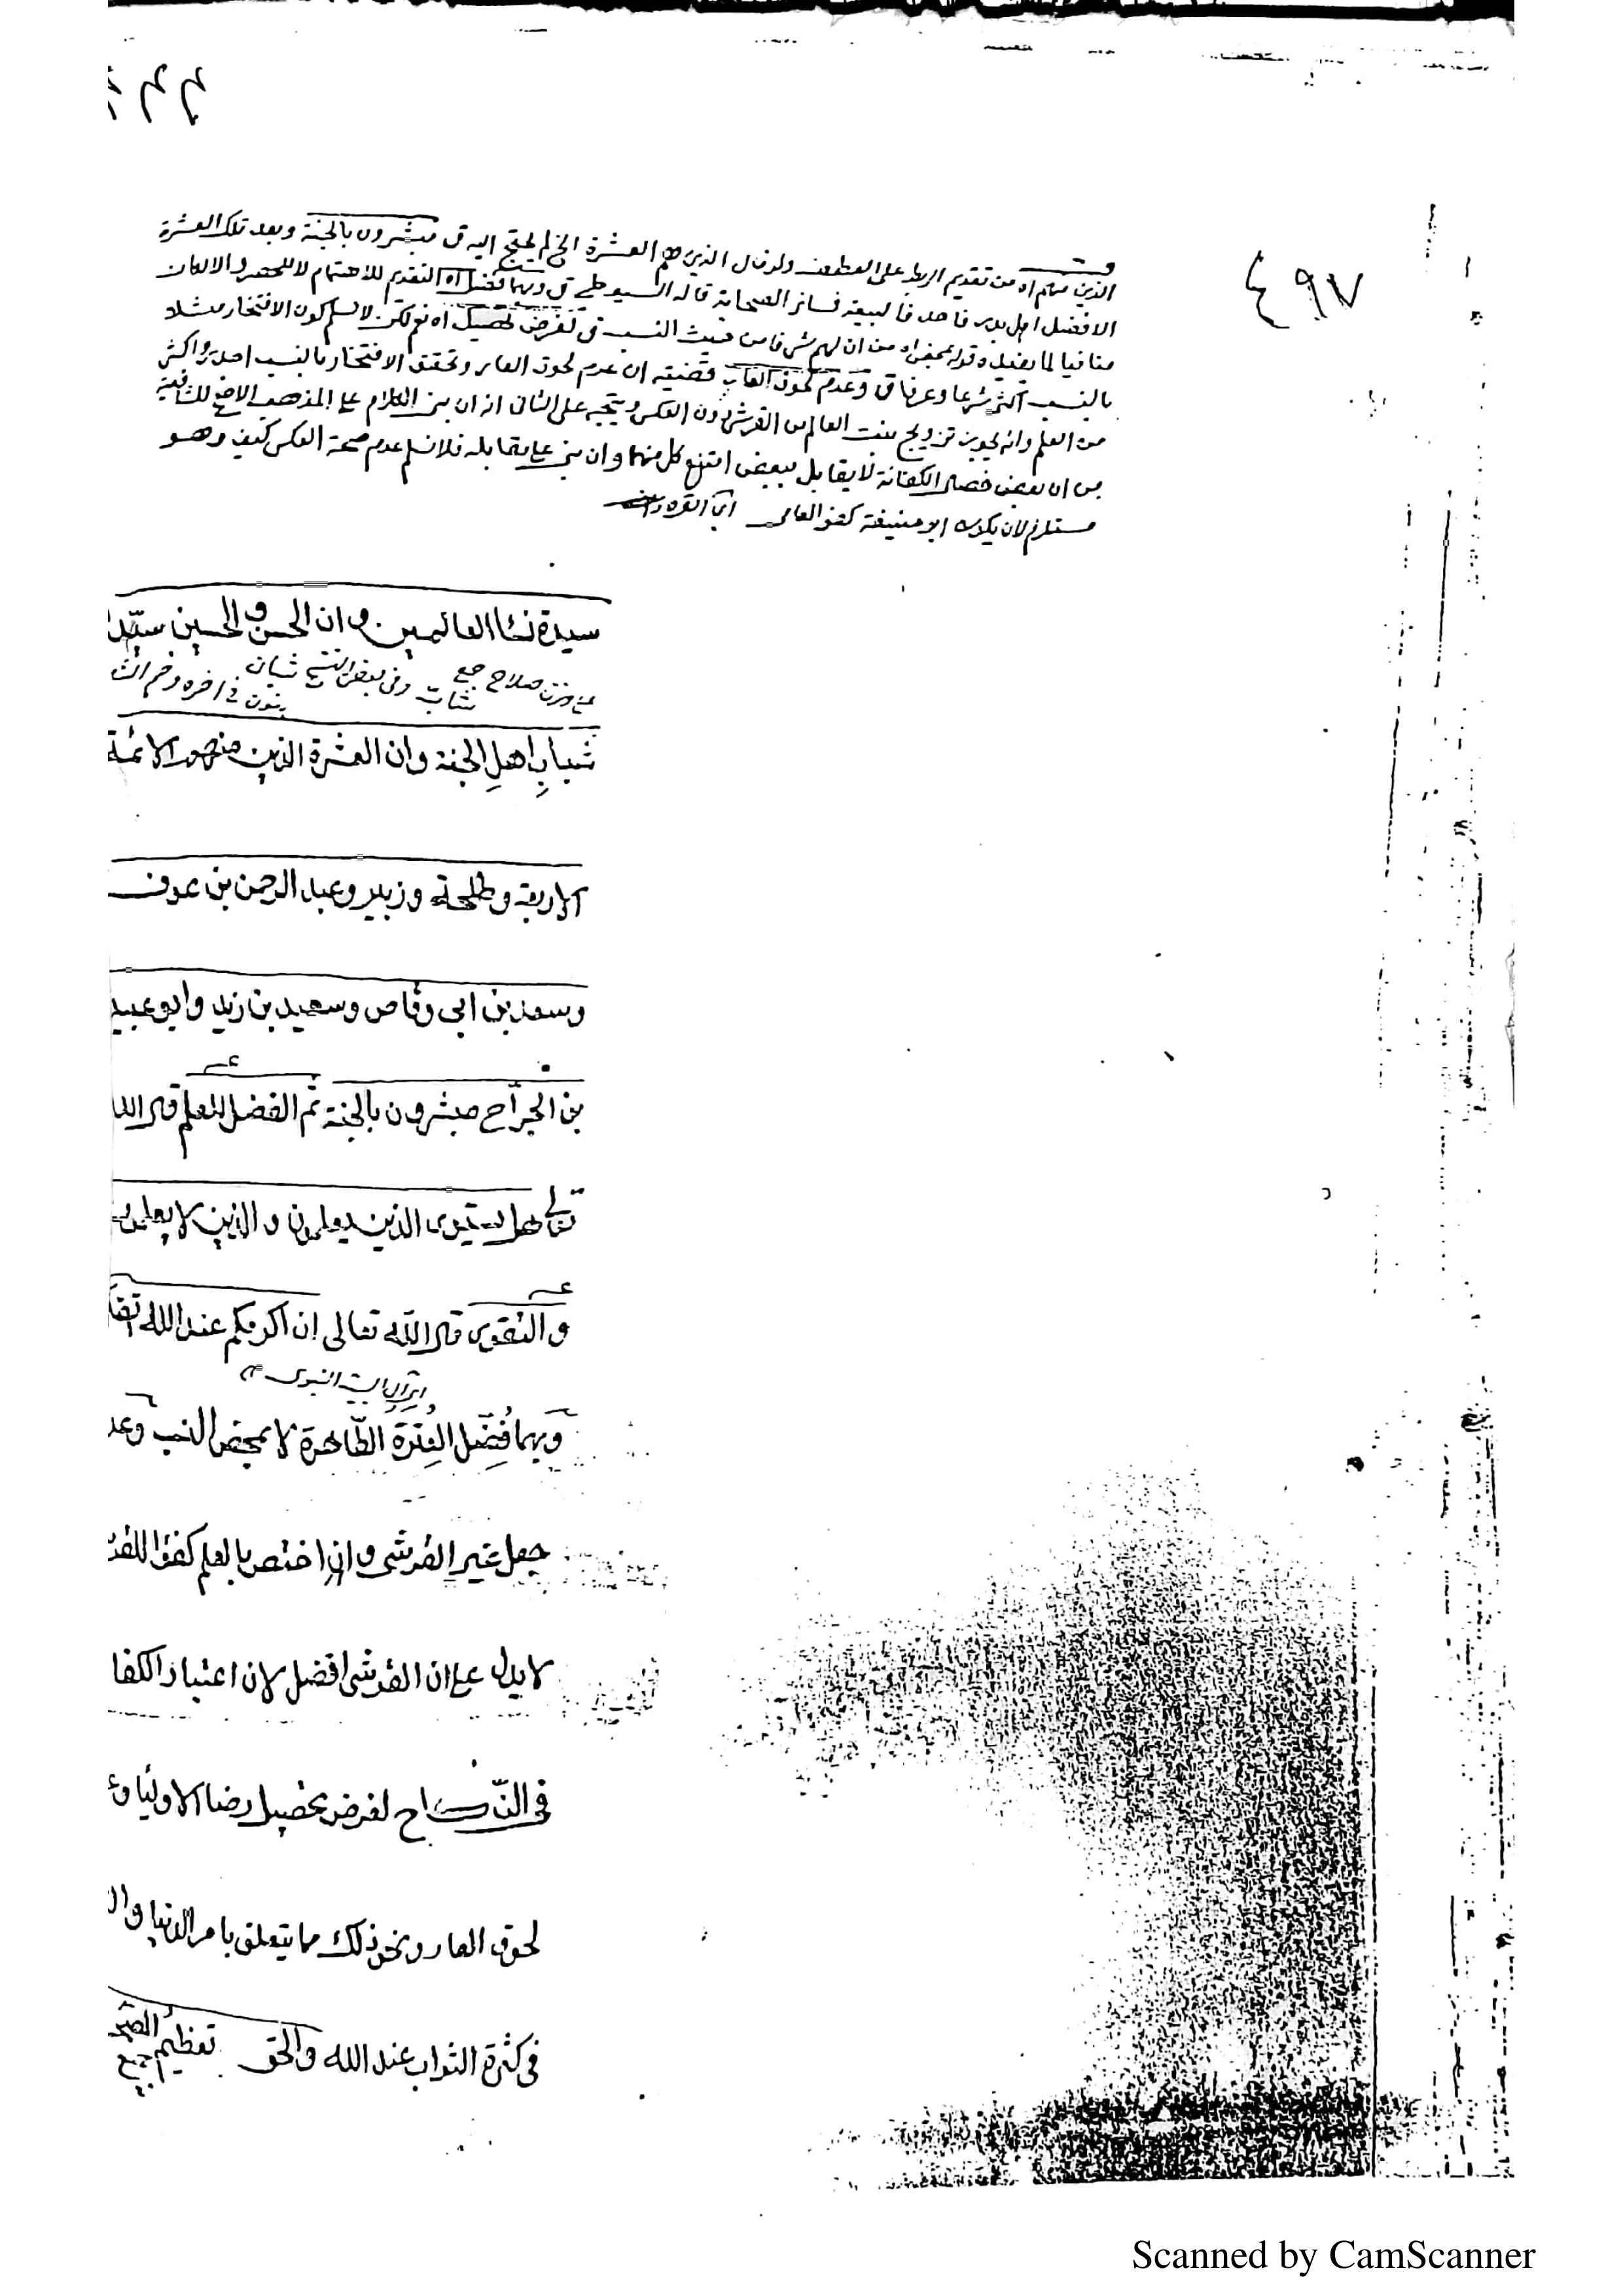 ٤٩٧
الذين منهم اه من تقديم الربط على العطف ولو قال الذين هم العشرة الخ لم يحتج اليه ق مبشرون بالجنة وبعد تلك العشرة
الافضل اهل بدر فاحد فالبيعة فسائر الصحابة قاله السيوطي ق وبهما فضل اه التقديم للاهتمام لا للحصر والا لكان
منافيا لما يفيده قوله بمحض اه من ان لهم شرفا من حيث النسب ق لغرض تحصيل اه نع لكن لا نسلم كون الافتخار مثلا
بالنسب اكثر شرعا وعرفا ق وعدم لحوق العار قضيته ان عدم لحوق العار وتحقق الافتخار بالنسب اصل واكثر
من العلم وانه يجوز تزويج بنت العالم من القرشي دون العكس ويتجه على الثاني انه ان بني الكلام على المذهب الاصح للشافعية
من ان بعض خصال الكفائة لا يقابل ببعض امتنع كل منهما وان بني على مقابله فلا نسلم عدم صحة العكس كيف وهو
مستلزم لان يكون ابو حنيفة كفو العامي ابن القره داغي
سيدة نساء العالمين وان الحسن والحسين سيدا
على وزن صلاح جمع شاب وفي بعض النسخ شبان بنون في اخره وضم
شباب اهل الجنة وان العشرة الذين منهم الائمة
الاربعة وطلحة وزبير وعبد الرحمن بن عوف
وسعد بن ابي وقاص وسعيد بن زيد وابو عبيد
بن الجراح مبشرون بالجنة ثم الفضل للعلم قال الله
تعالى هل يستوى الذين يعلمون والذين لا يعلمون
والتقوى قال الله تعالى ان اكرمكم عند الله اتقا
اي آل البيت النبوى
وبهما فضل العترة الطاهرة لا بمحض النسب وعد
جعل غير القرشى وان اختص بالعلم كفؤا للقر
لا يدل على ان القرشى افضل لان اعتبار الكفا
فى النكاح لغرض تحصيل رضا الاوليا و
لحوق العار ونحو ذلك مما يتعلق بامر الدنيا وال
فى كثرة الثواب عند الله والحق تعظيم جميع الصح